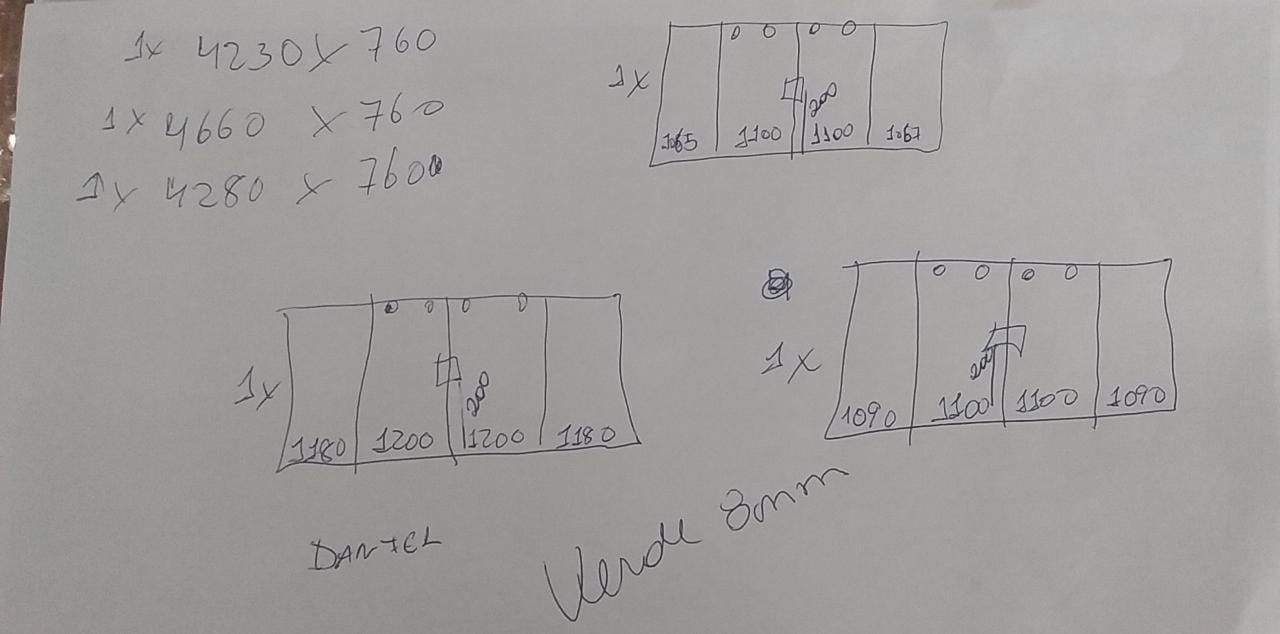 1x 4230 x 760
1x 4660 x 760
1x 4280 x 760
1x
200
1065 1100 1100 1067
1x
200
1180 1200 1200 1180
1x
200
1090 1100 1100 1090
DANIEL
Verde 8mm